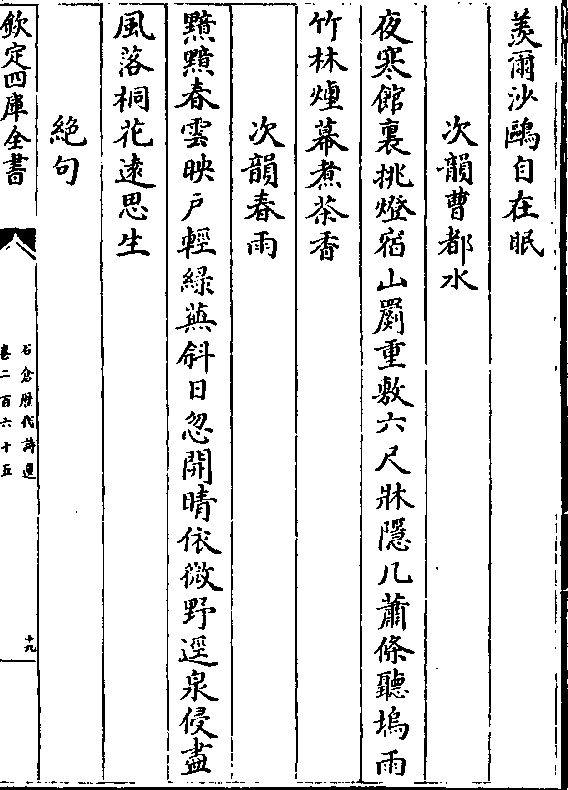 羨爾沙鷗自在眠
次韻曹都水
夜寒館裏挑燈宿山罽重敷六尺牀隱几蕭條聽塢雨
竹林煙幕煮茶香
次韻春雨
黯黯春雲映戶輕綠蕪斜日忽開晴依微野逕泉侵盡
風落桐花遠思生
絶句
欽定四庫全書
石倉歷代詩選
卷二百六十五
十九